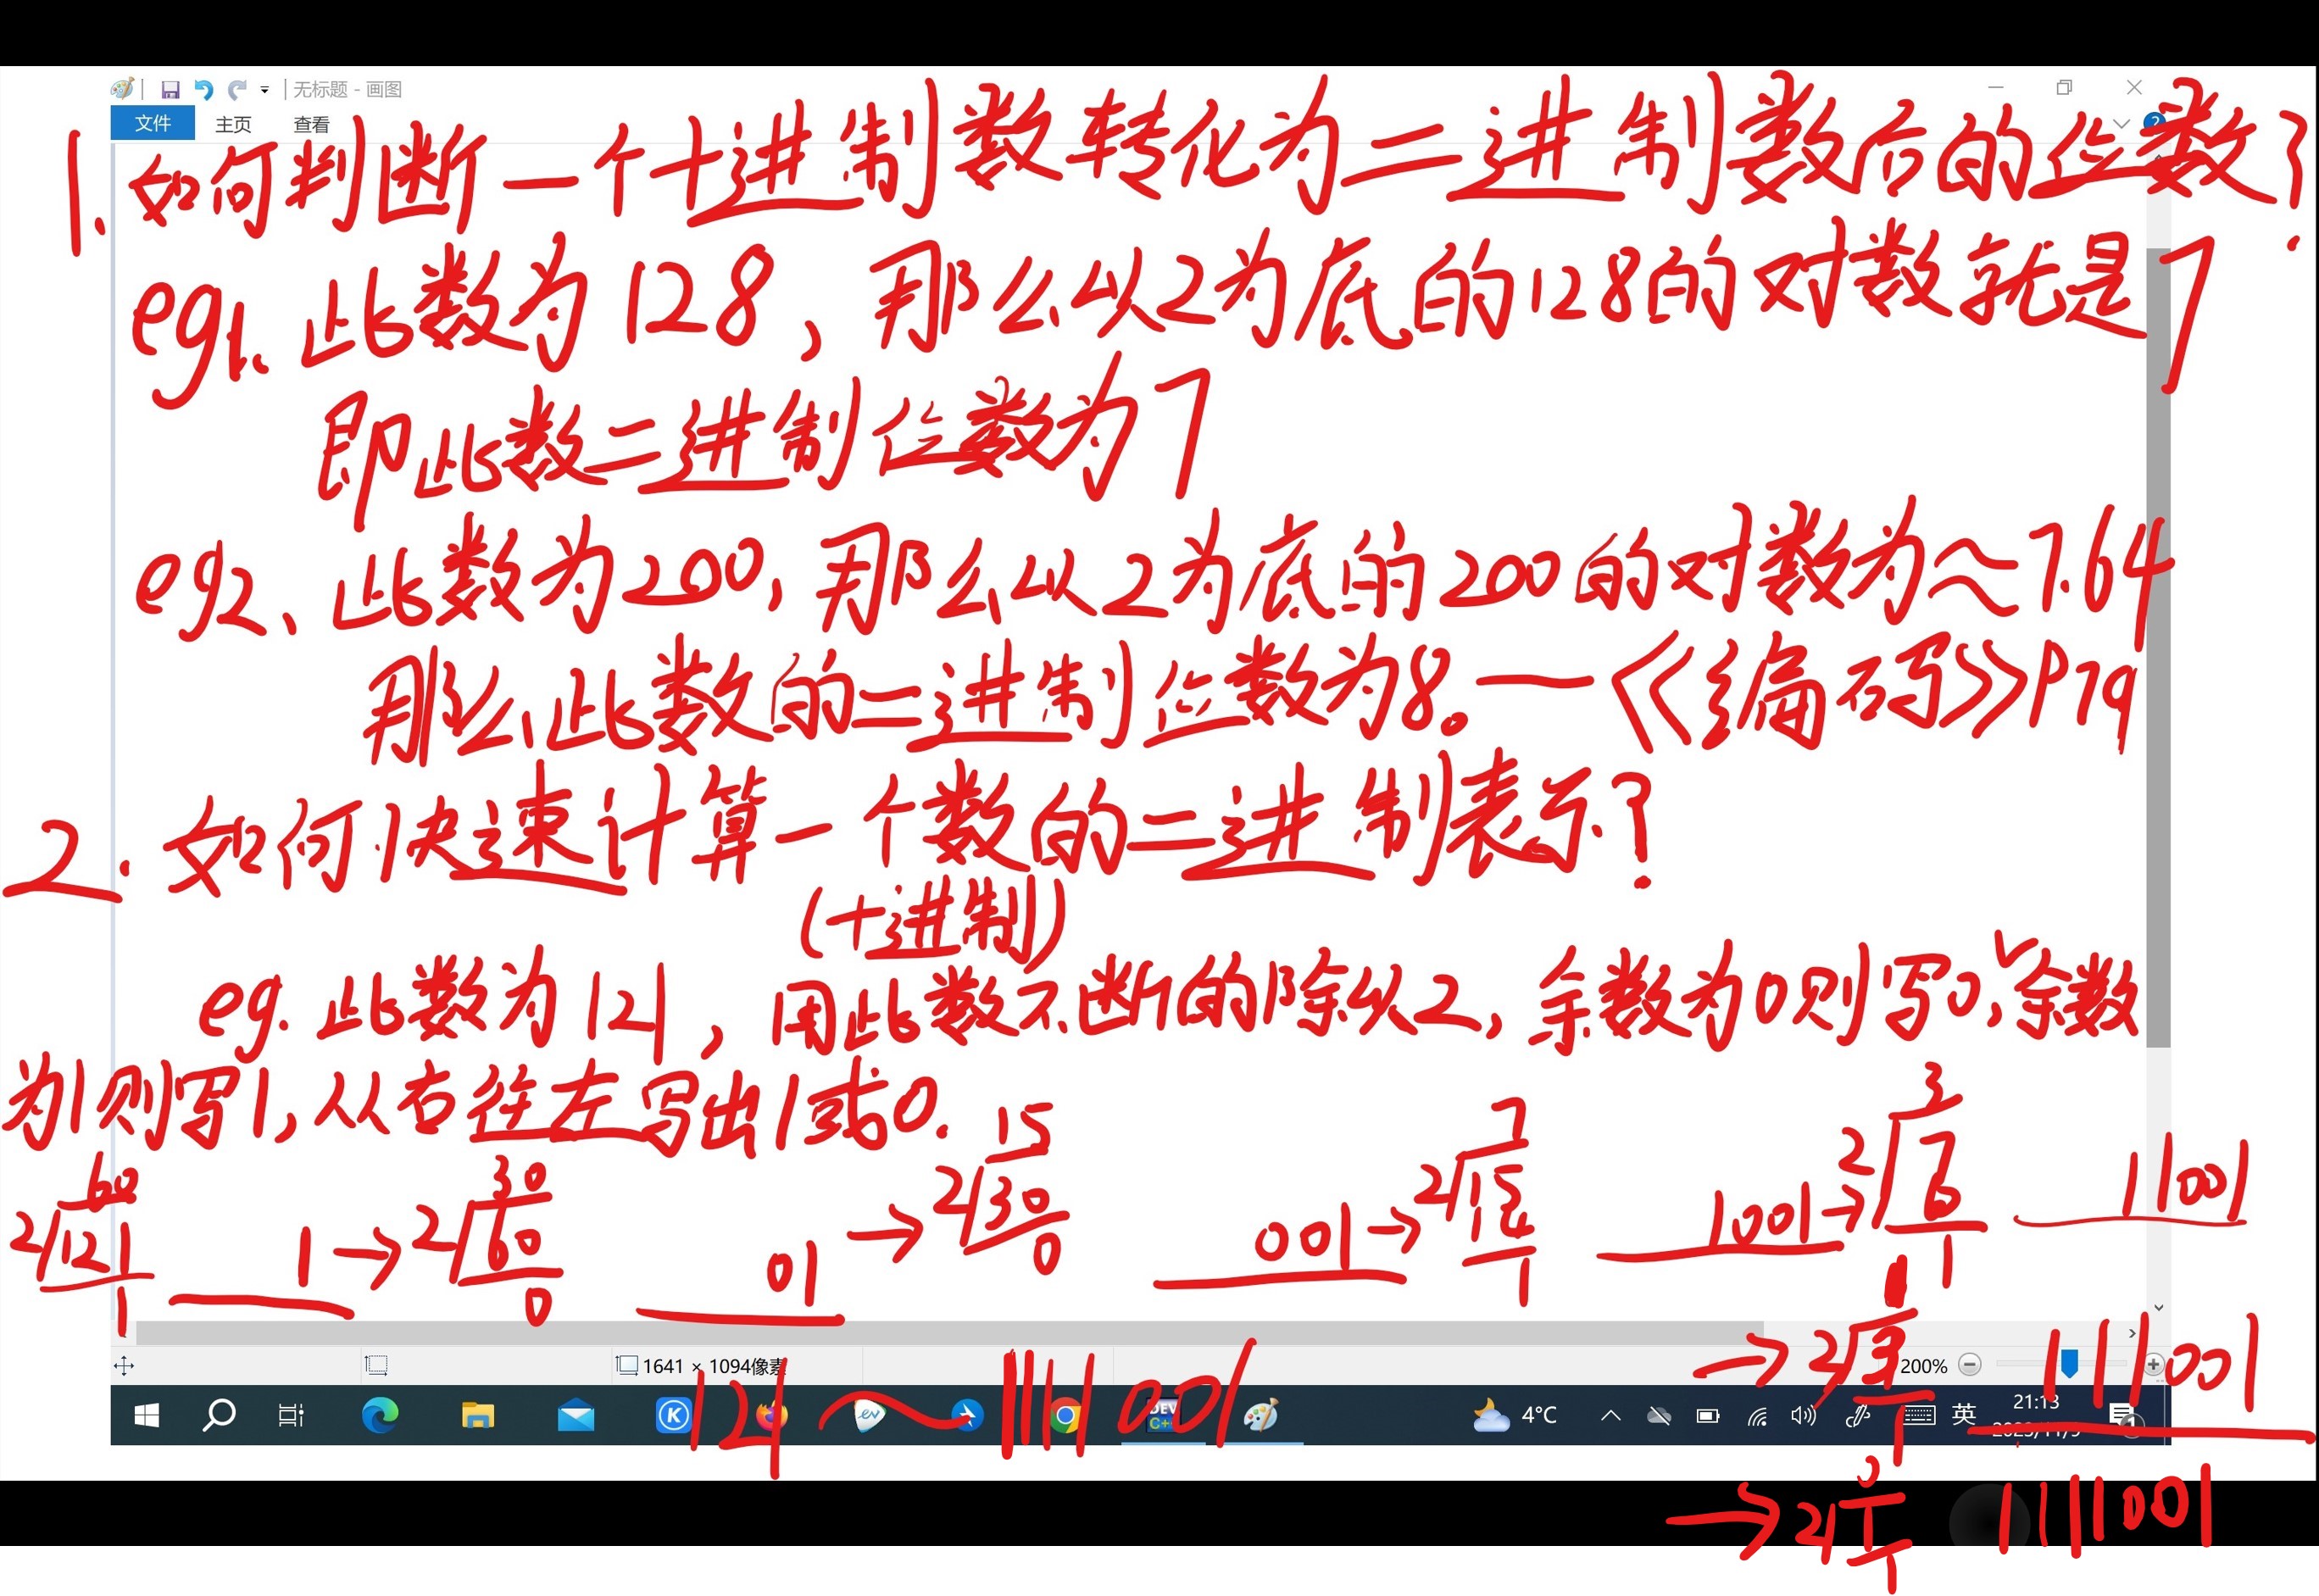 无标题 - 画图
文件 主页 查看
1.如何判断一个十进制数转化为二进制数后的位数?
eg1.此数为128,那么以2为底的128的对数就是7
即此数二进制位数为7
eg2、此数为200,那么以2为底的200的对数为≈7.64
那么此数的二进制位数为8。—《编码》P79
2.如何快速计算一个数的二进制表示?
(十进制)
eg.此数为121,用此数不断的除以2,余数为0则写0,余数
为1则写1,从右往左写出1或0.
60
2/121
1
1
→ 30
2/60
0
01
→ 15
2/30
0
001
→ 7
2/15
14
1
1001
→ 3
2/7
6
1
11001
→ 1
2/3
1
111001
→ 0
2/1
1
1111001
121 ~ 1111001
1641 × 1094像素
200%
4°C
英
21:13